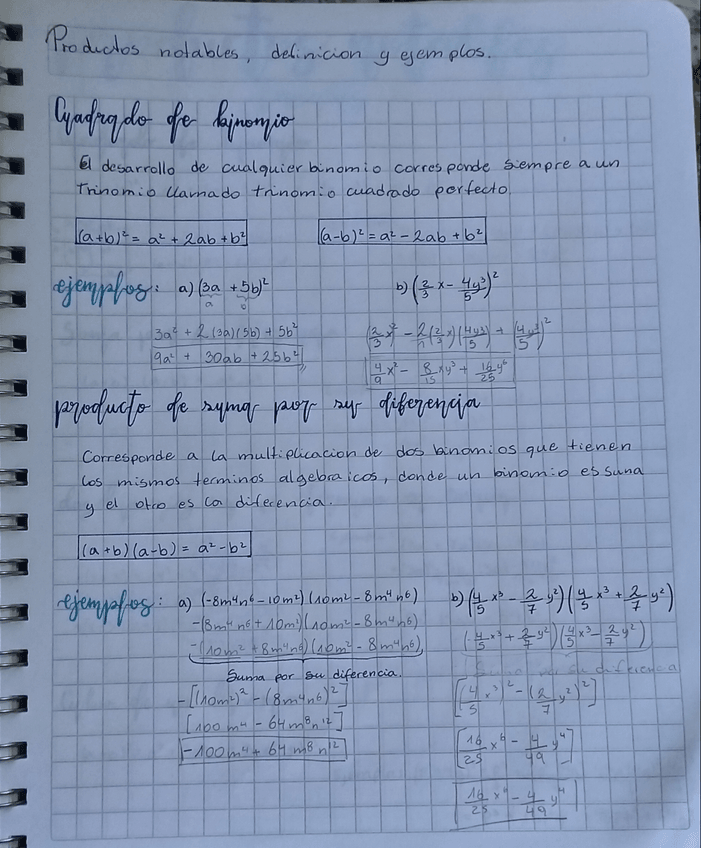 Productos notables, definicion y ejemplos.
Cuadrado de binomio
El desarrollo de cualquier binomio corresponde siempre a un
trinomio llamado trinomio cuadrado perfecto.
(a+b)² = a² + 2ab + b²
(a-b)² = a² - 2ab + b²
ejemplos: a) (3a + 5b)²
a b
3a² + 2(3a)(5b) + 5b²
9a² + 30ab + 25b²
b) (2/3 x - 4y³/5)²
(2/3 x)² - 2/1 (2/3 x)(4y³/5) + (4y³/5)²
4/9 x² - 8/15 xy³ + 16/25 y⁶
producto de suma por su diferencia
Corresponde a la multiplicacion de dos binomios que tienen
los mismos terminos algebraicos, donde un binomio es suna
y el otro es la diferencia.
(a+b)(a-b) = a² - b²
ejemplos: a) (-8m⁴n⁶ - 10m²)(10m² - 8m⁴n⁶)
-(8m⁴n⁶ + 10m²)(10m² - 8m⁴n⁶)
-(10m² + 8m⁴n⁶)(10m² - 8m⁴n⁶)
Suma por su diferencia.
-[(10m²)² - (8m⁴n⁶)²]
[100m⁴ - 64m⁸n¹²]
-100m⁴ + 64m⁸n¹²
b) (4/5 x³ - 2/7 y²)(4/5 x³ + 2/7 y²)
(4/5 x³ + 2/7 y²)(4/5 x³ - 2/7 y²)
Suma por su diferencia
[(4/5 x³)² - (2/7 y²)²]
[16/25 x⁶ - 4/49 y⁴]
16/25 x⁶ - 4/49 y⁴